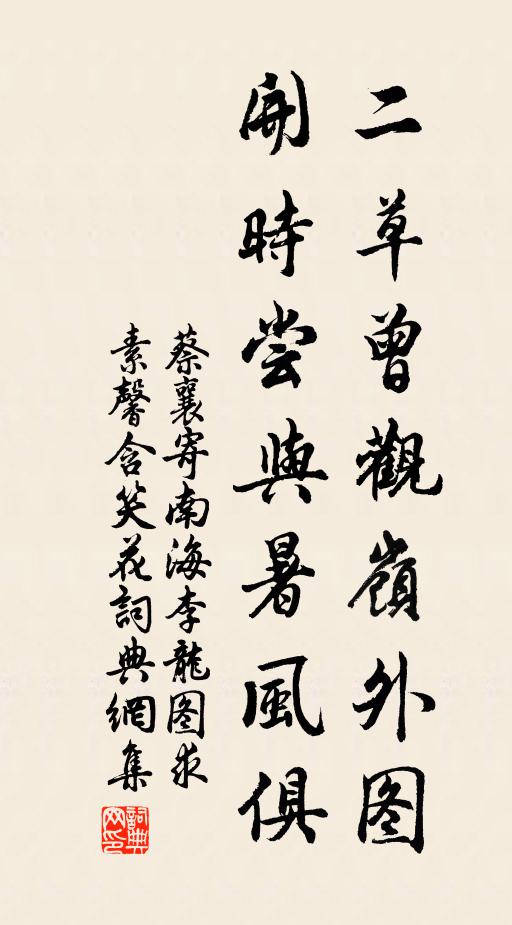 二草曾觀嶺外图
開時尝與暑風俱
蔡襄寄南海李龍图求
素馨含笑花詞典網集
詞典网印